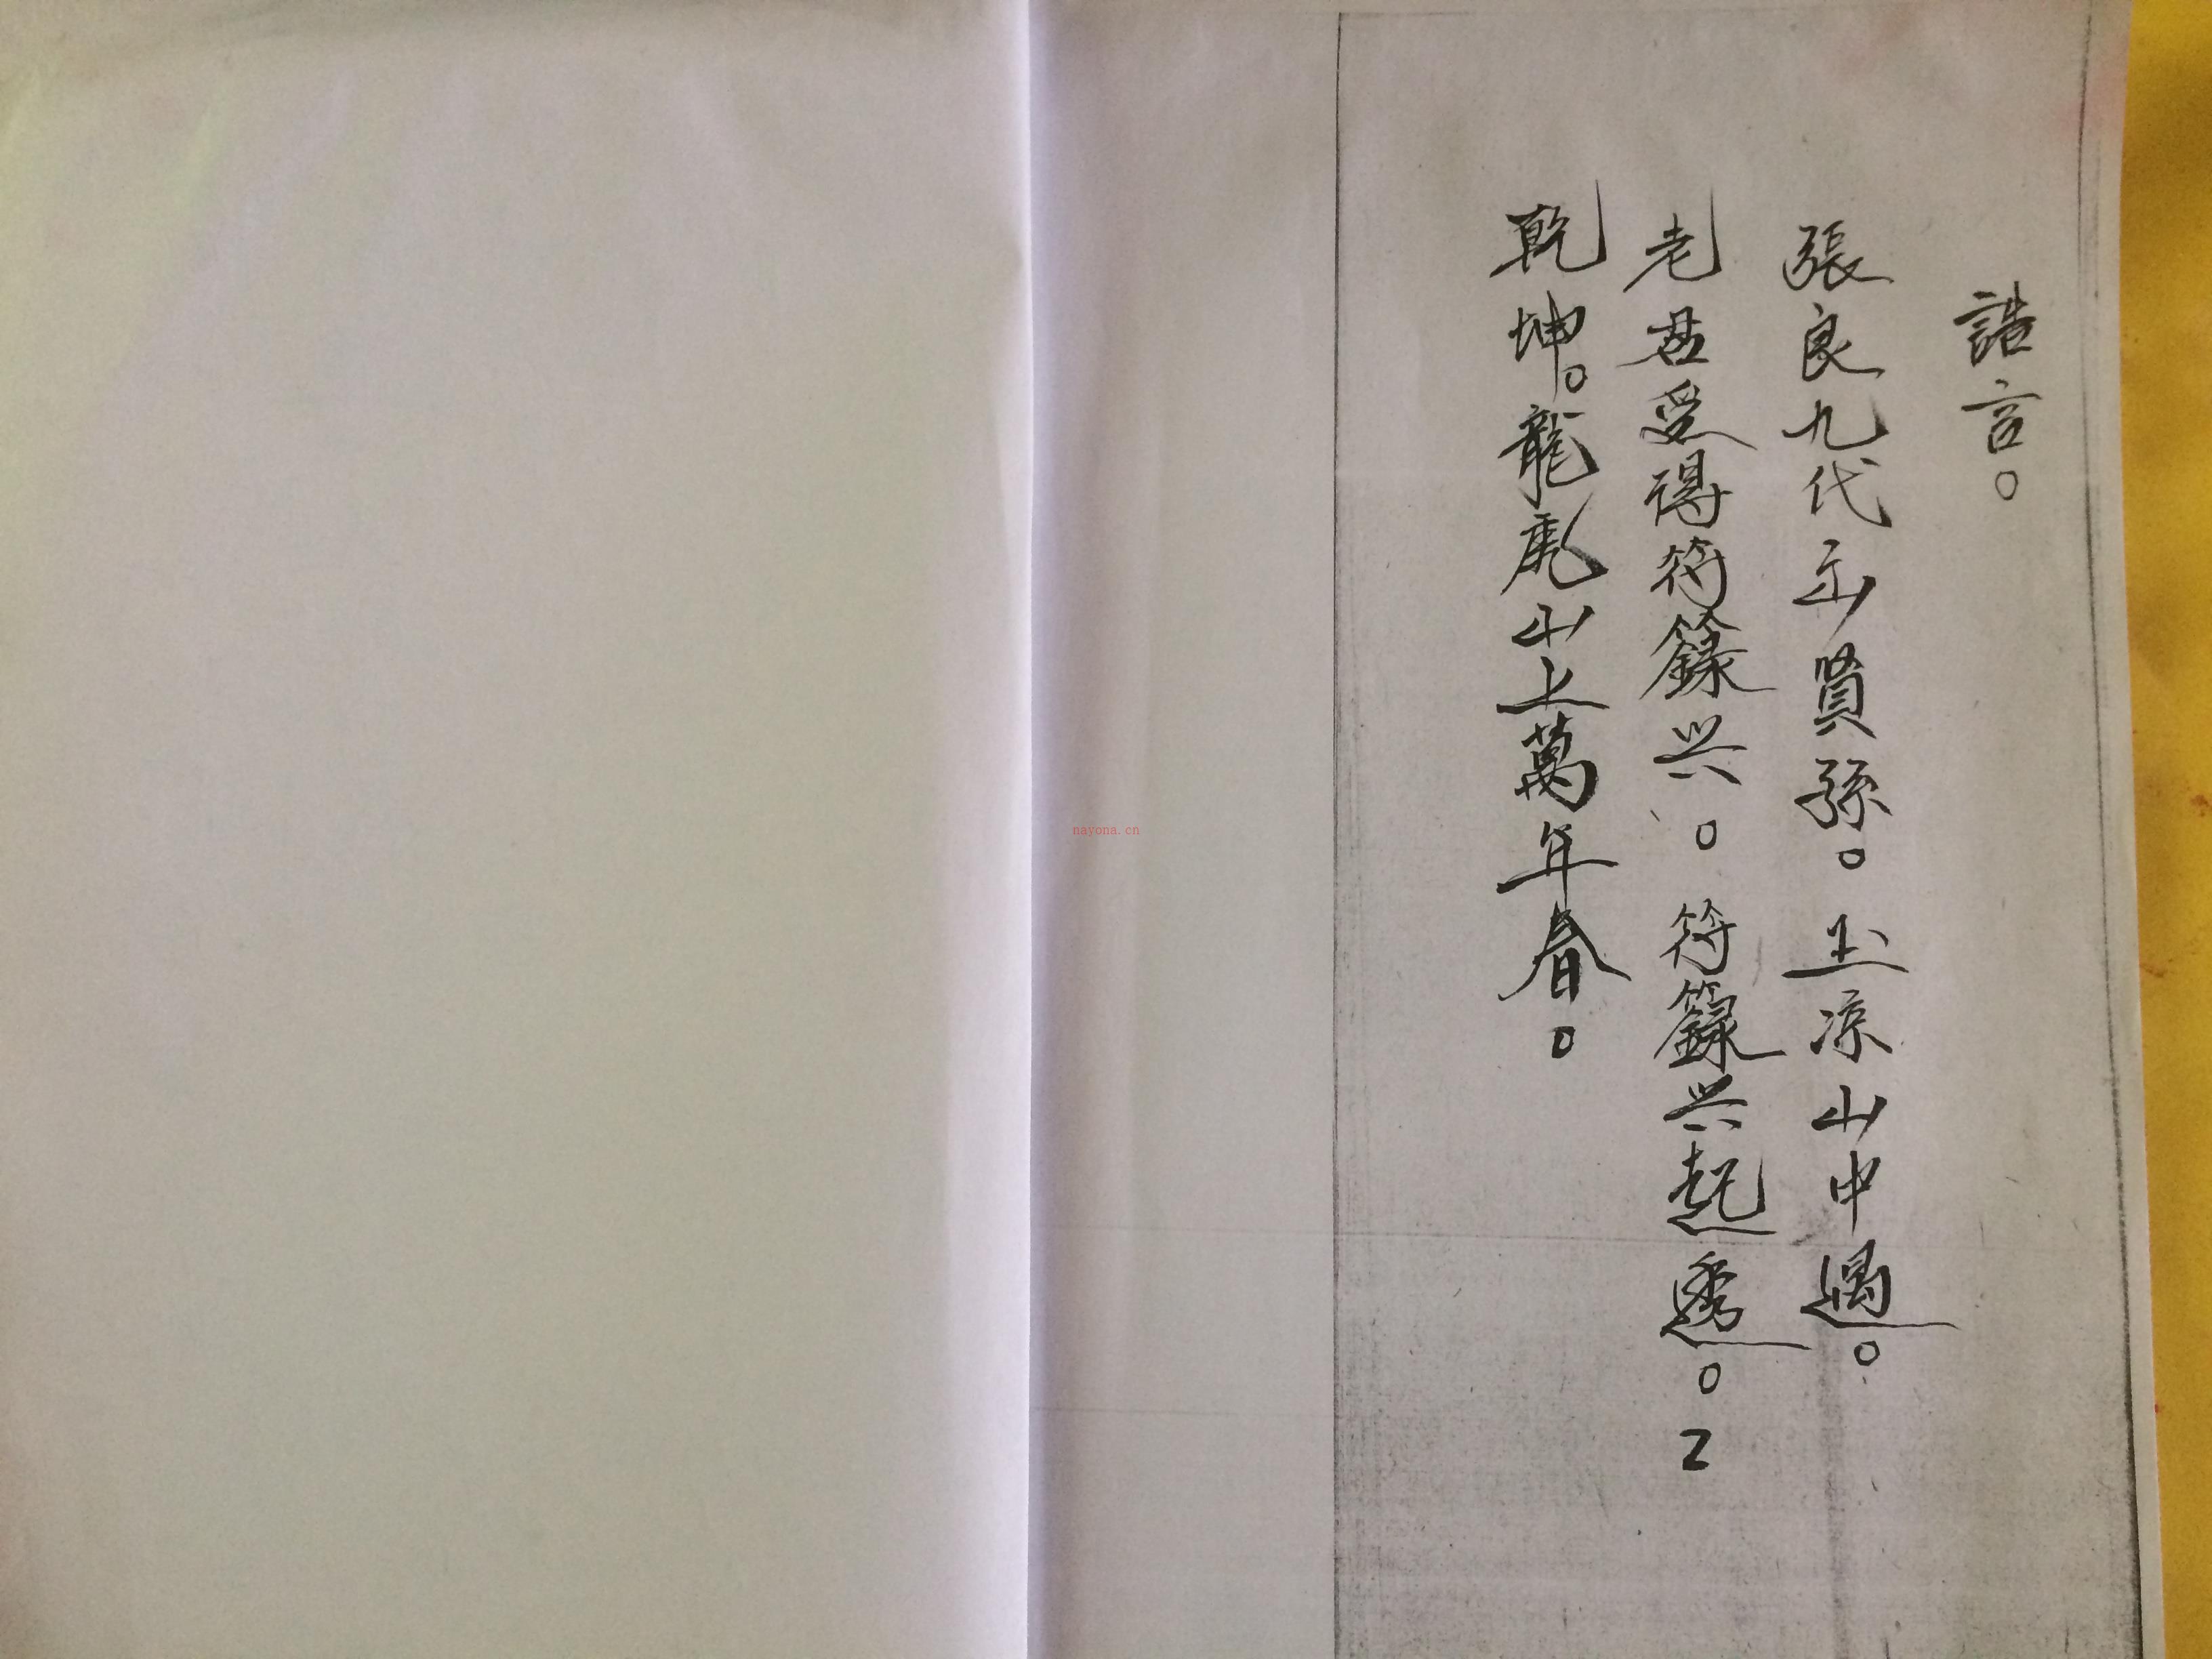 誥言。
張良九代出賢孫。玉凉山中遇。
老君受得符籙兴。符籙兴起透。2
乾坤。龍虎山上萬年春。
nayona.cn